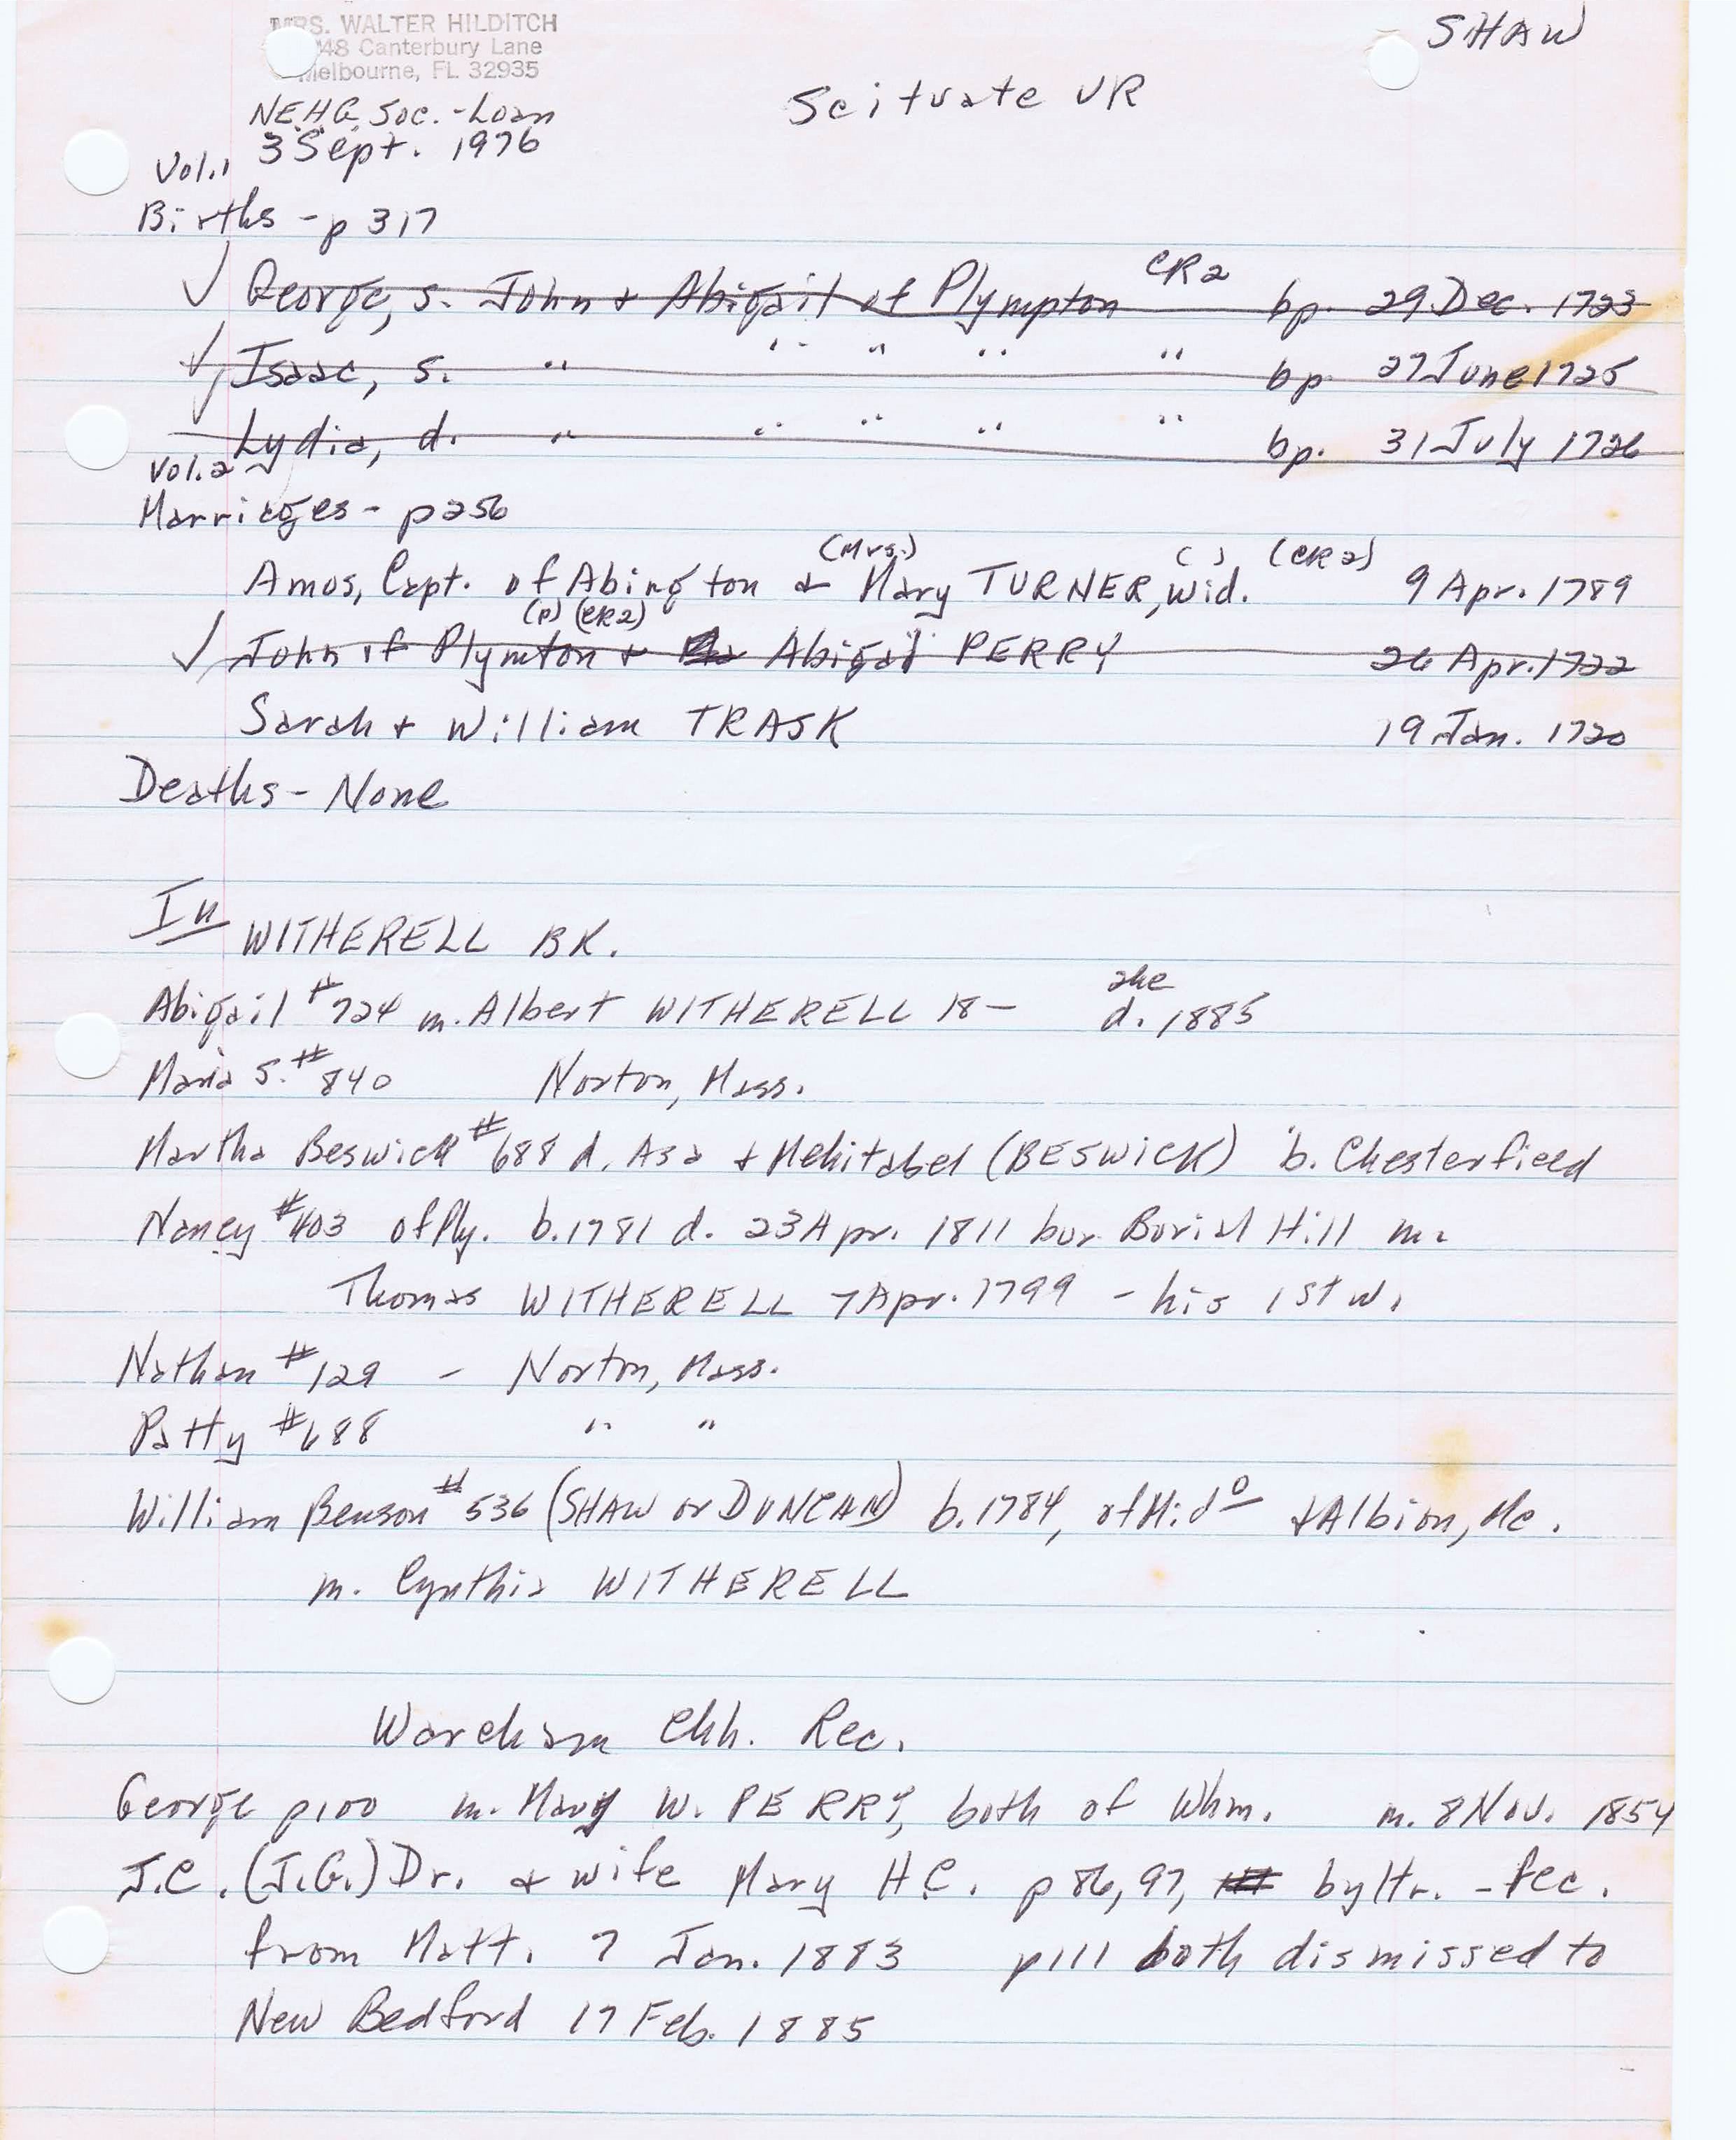 MRS. WALTER HILDITCH
48 Canterbury Lane
Melbourne, FL 32935
SHAW
Scituate VR
N.E.H.G. Soc. - Loan
3 Sept. 1976
Vol. 1
Births - p 317
✓ George, s. John + Abigail of Plympton CR2 bp. 29 Dec. 1723
✓ Isaac, s. " " " " " bp. 27 June 1725
Lydia, d. " " " " " bp. 31 July 1726
Vol. 2
Marriages - p 256
Amos, Capt. of Abington + (Mrs.) Mary TURNER, wid. ( ) (CR2) 9 Apr. 1789
✓ John of Plymton (P) (CR2) + Abigail PERRY 26 Apr. 1722
Sarah + William TRASK 19 Jan. 1720
Deaths - None
In WITHERELL BK.
Abigail #724 m. Albert WITHERELL 18— she d. 1885
Maria S. #840 Norton, Mass.
Martha Beswick #688 d. Asa + Mehitabel (BESWICK) b. Chesterfield
Nancy #403 of Ply. b. 1781 d. 23 Apr. 1811 bur. Burial Hill m.
Thomas WITHERELL 7 Apr. 1799 - his 1st w.
Nathan #129 - Norton, Mass.
Patty #688 " "
William Benson #536 (SHAW or DUNCAN) b. 1784, of Mid° + Albion, Me.
m. Cynthia WITHERELL
Wareham Chh. Rec.
George p100 m. Mary W. PERRY, both of Whm. m. 8 Nov. 1854
J.C. (J.G.) Dr. + wife Mary H C. p 86, 97, by ltr. - rec.
from Matt. 7 Jan. 1883 p111 both dismissed to
New Bedford 17 Feb. 1885